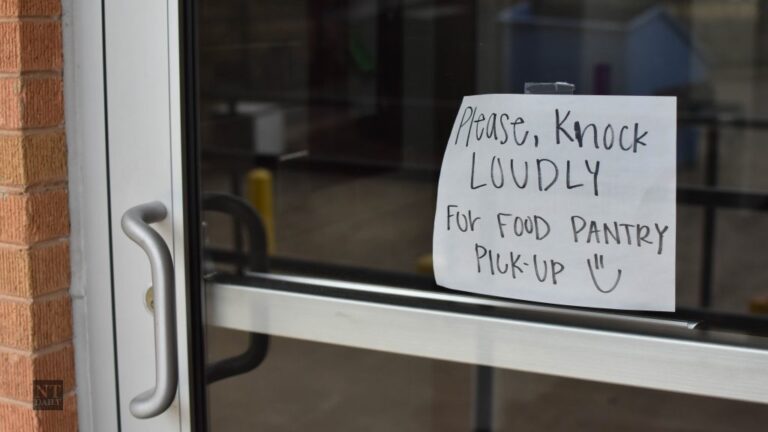 Please, Knock
LOUDLY
FOR FOOD PANTRY
PICK-UP
NT
DAILY